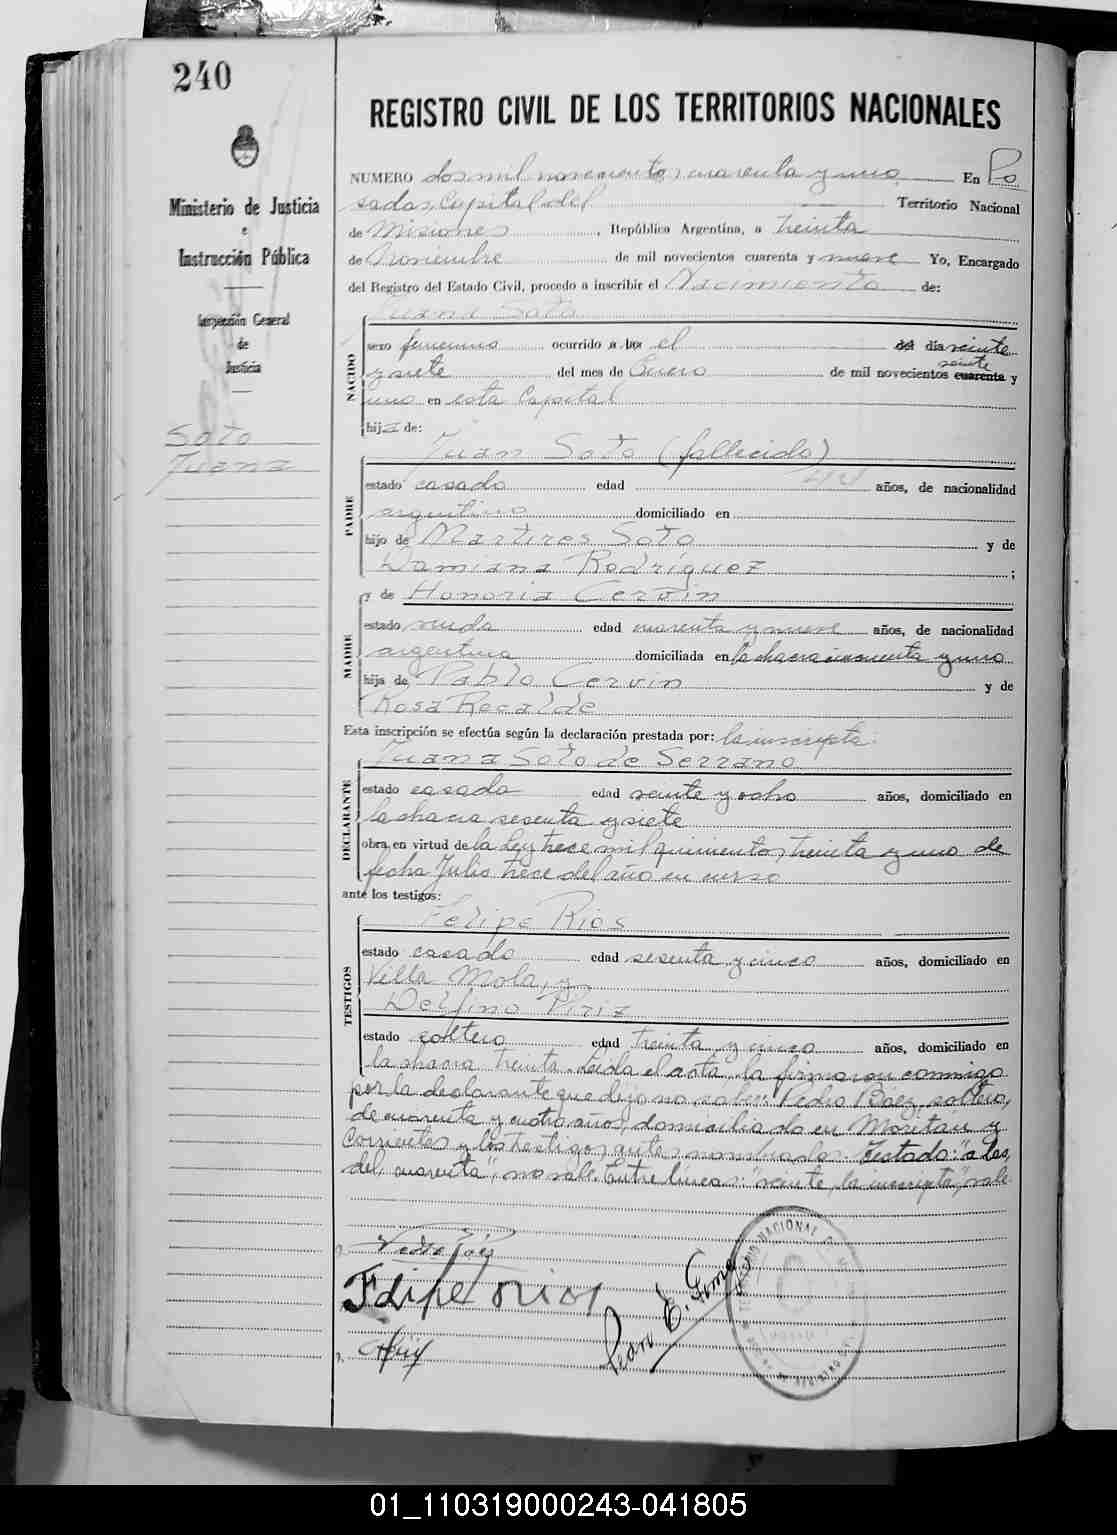 240
REGISTRO CIVIL DE LOS TERRITORIOS NACIONALES
Ministerio de Justicia
e
Instrucción Pública
Inspección General
de
Justicia
Soto
Juana
NUMERO dos mil novecientos cuarenta y uno En Po
sadas, Capital del Territorio Nacional
de Misiones, República Argentina, a treinta
de Noviembre de mil novecientos cuarenta y nueve Yo, Encargado
del Registro del Estado Civil, procedo a inscribir el Nacimiento de:
Juana Soto
NACIDO
sexo femenino ocurrido a las el del día veinte
veinte
y siete del mes de Enero de mil novecientos cuarenta y
uno en esta Capital
hija de:
Juan Soto (fallecido)
PADRE
estado casado edad años, de nacionalidad
argentino domiciliado en
hijo de Martires Soto y de
Damiana Rodríguez ;
y de Honoria Cervin
MADRE
estado viuda edad cuarenta y nueve años, de nacionalidad
argentina domiciliada en la chacra cincuenta y uno
hija de Pablo Cervin y de
Rosa Recalde
Esta inscripción se efectúa según la declaración prestada por: la inscripta:
Juana Soto de Serrano
DECLARANTE
estado casada edad veinte y ocho años, domiciliado en
la chacra sesenta y siete
obra en virtud de la Ley trece mil quinientos treinta y uno de
fecha Julio trece del año en curso
ante los testigos:
Felipe Rios
TESTIGOS
estado casado edad sesenta y cinco años, domiciliado en
Villa Mola, y
Delfino Piriz
estado soltero edad treinta y cinco años, domiciliado en
la chacra treinta. Leida el acta, la firmaron conmigo
por la declarante que dijo no saber: Pedro Báez, soltero,
de cuarenta y cuatro años, domiciliado en Moritan y
Corrientes y los testigos antes nombrados. Testado: "a las,
del, cuarenta", no vale. Entre líneas: "veinte, la inscripta", vale.
Pedro Báez
Felipe rios
Pedro E. Gom
01_110319000243-041805